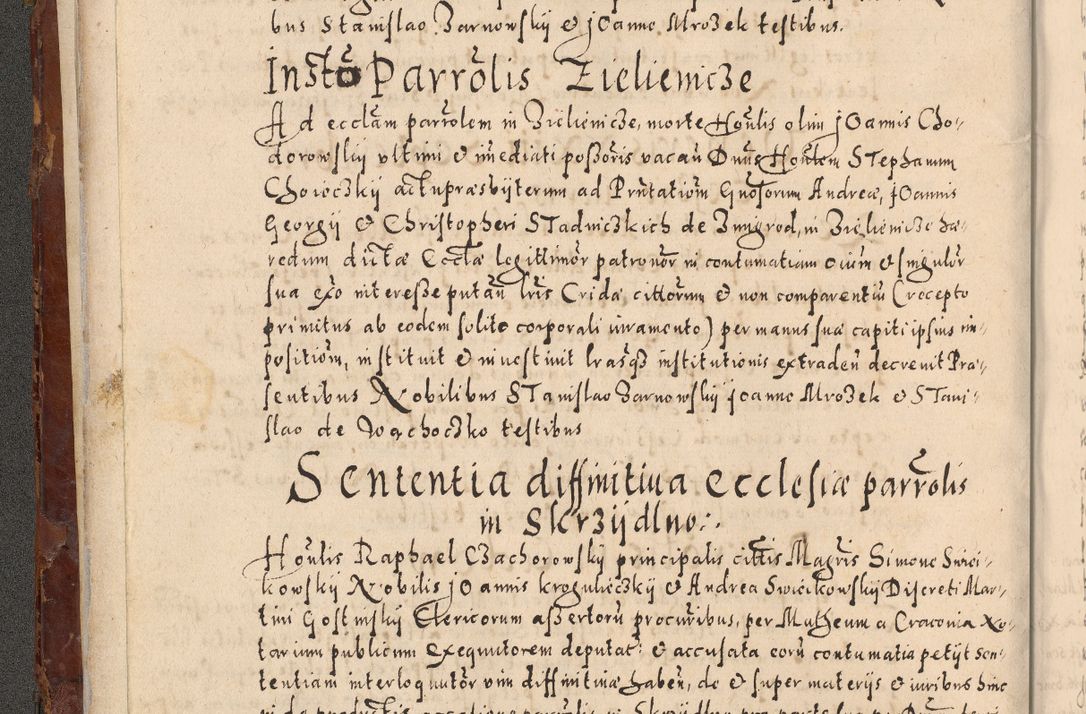 bus Stanislao Zarnowskij & jOanne Mrozek testibus.
Instō Parrōlis Zielienicze
Ad ecclām parrōlem in Zielienicze, morte Hoūlis olim jOannis Cho-
dorowskij ultimi & imediati poßoris vacan̄ Dnūs Hoūlem STephanum
Choieczkij actu præsbijterum ad Prn̄tatioīm Gn̄osorum Andreæ, jOannis
Georgij & Christopheri STadniczkich de Zmigrod, in Zielienicze hæ-
redum dictæ Ecclæ legittimōr patronōr in contumatiam oiūm & singulōr
sua eō̄o intereße putan̄ lrīs Crida cittorum & non comparentiū (recepto
primitus ab eodem solito corporali iuramento) per manus suæ capiti ipsius im-
positioīm, instituit & inuestiuit lrasq3 institutionis extraden̄ decreuit Præ-
sentibus Nobilibus STanislao Zarnowskij joanne Mrozek & STani-
slao de Wąchoczko testibus
Sententia diffinitiua ecclesiæ parrōlis
in Skrzijdlno:.
Hoūlis Raphael Czachorowskij principalis cittis Magrīs Simone Swiei-
kowskij Nobilis jOannis kroguleczkij & Andrea Swieikowskij Discreti Mar-
tini Gostinskij Clericorum aßertorū procuribus, per Matheum a Craconia No-
tarium publicum Exequutorem deputat: & accusata eorū contumatia petijt sen-
tentiam interloquutōr vim diffinitiuæ haben̄, de & super materijs & iuribus hinc